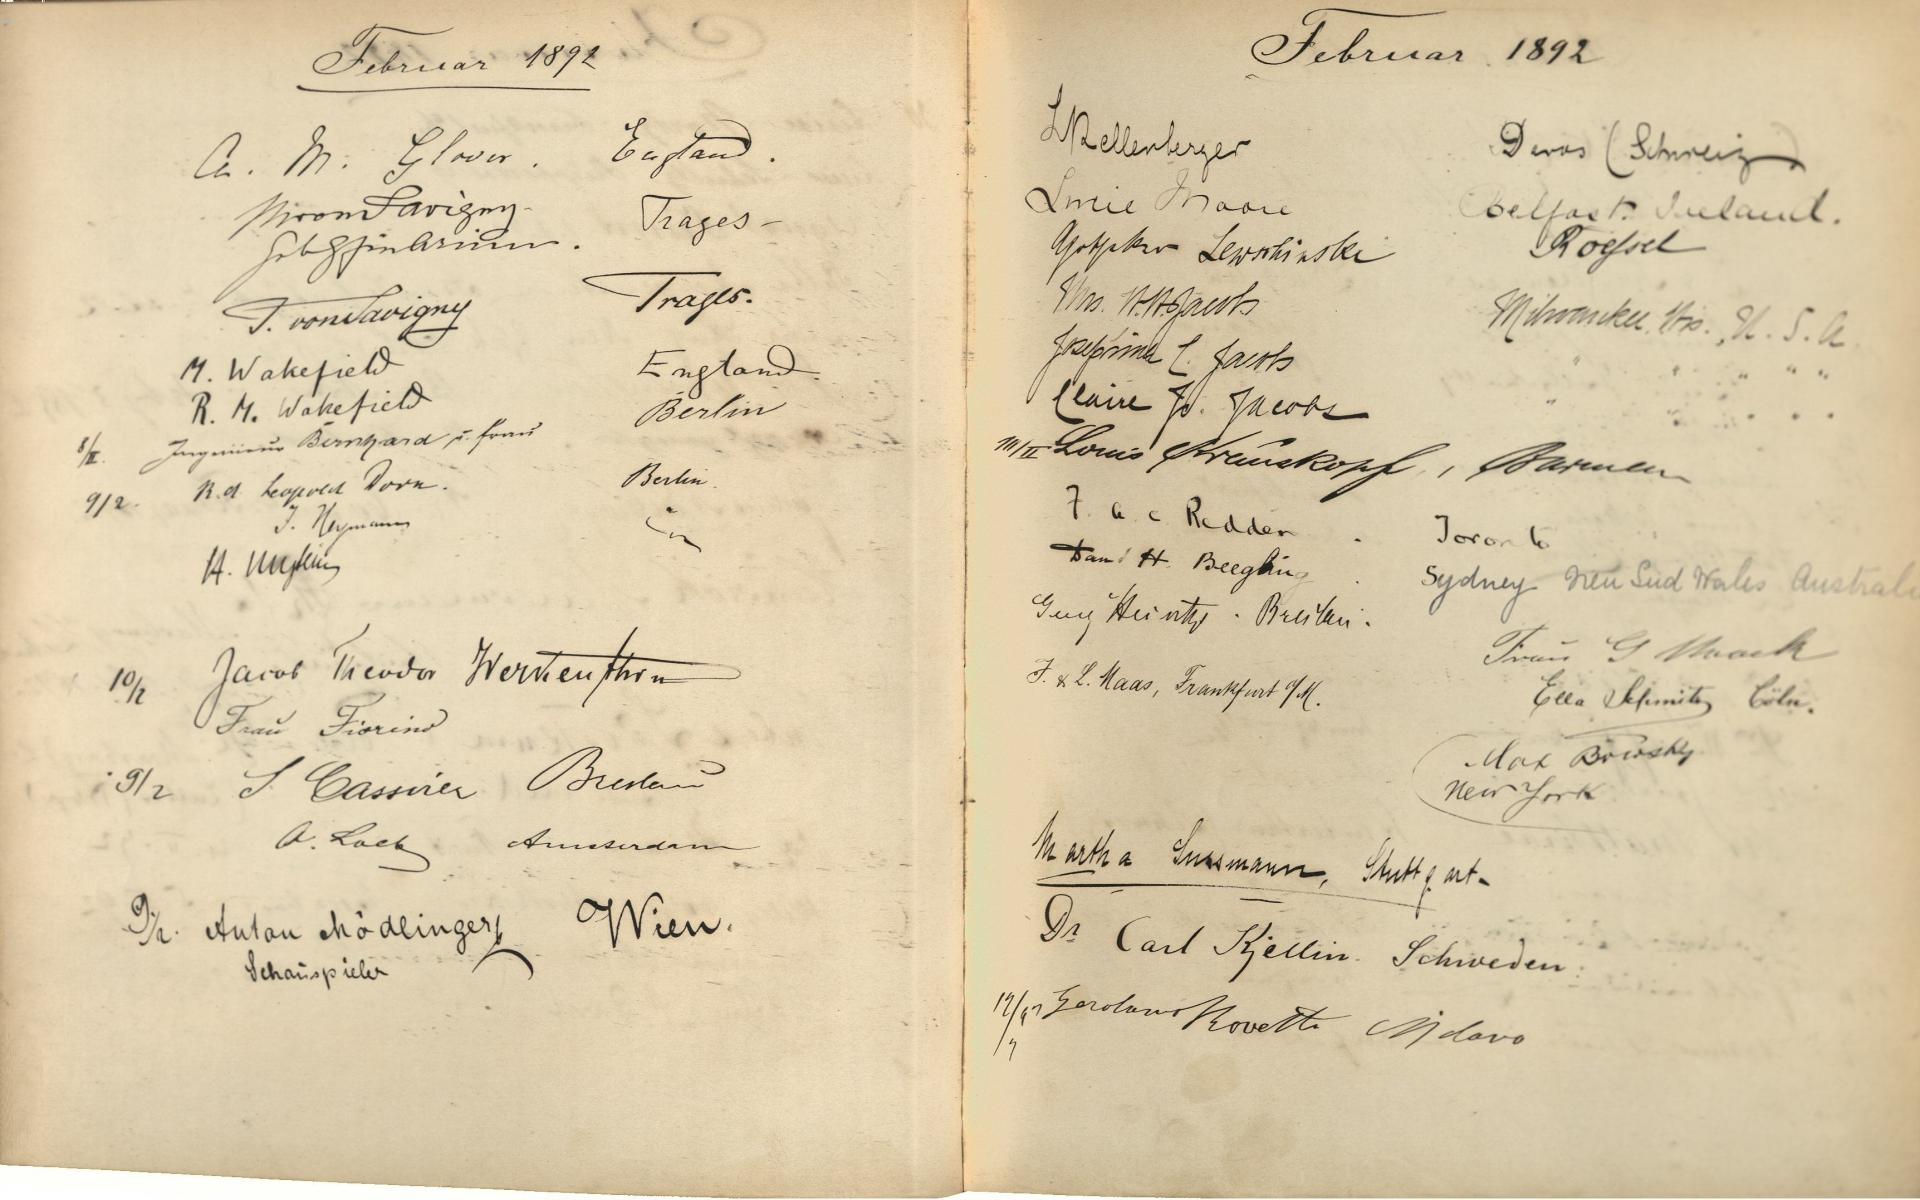 Februar 1892
A. M. Glover. England.
von Savigny Trages-
T. von Savigny Trages.
M. Wakefield England.
R. M. Wakefield
8/II. Ingenieur Bernhard u. Frau Berlin
9/2. R.d. Leopold Dorn. Berlin.
J. Heymann
H.
10/2 Jacob Theodor
Frau Fiorino
9/2 S Cassirer Breslau
A. Amsterdam
9/2. Anton Mödlinger Wien.
Schauspieler
Februar 1892
L Kellenberger Davos (Schweiz)
Moore Belfast. Ireland.
Lewschinski Roessel
Mrs. H.H. Jacobs Milwaukee, Wis., U. S. A
Josephine C. Jacobs " " " "
Claire Jacobs " " " "
10/II Louis Krauskopf, Barmen
F. a. c. Redden. Toronto
H. Sydney Neu Sud Wales Australi
Georg Heintze. Breslau.
Frau G Maack
F. & L. Maas, Frankfurt a/M.
Ella Schmitz Cöln.
Max
New York
Martha Sussmann, Stuttgart-
Dr Carl Kjellin. Schweden.
Gerolamo Rovetta Milano